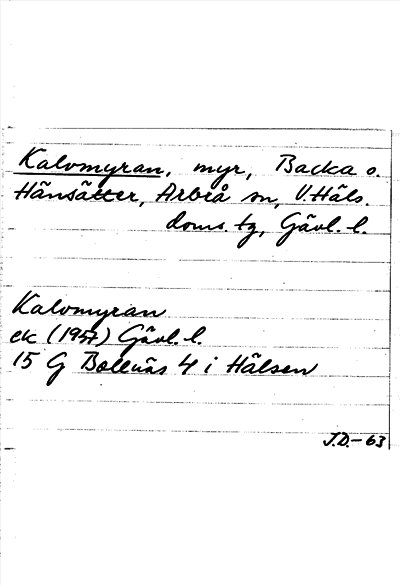 Kalvmyran, myr, Backa o.
Hänsätter, Arbrå sn, V. Häls.
doms. tg, Gävl. l.
Kalvmyran
ek (1957) Gävl. l.
15 G Bollnäs 4 i Hälsen
J.D.-63